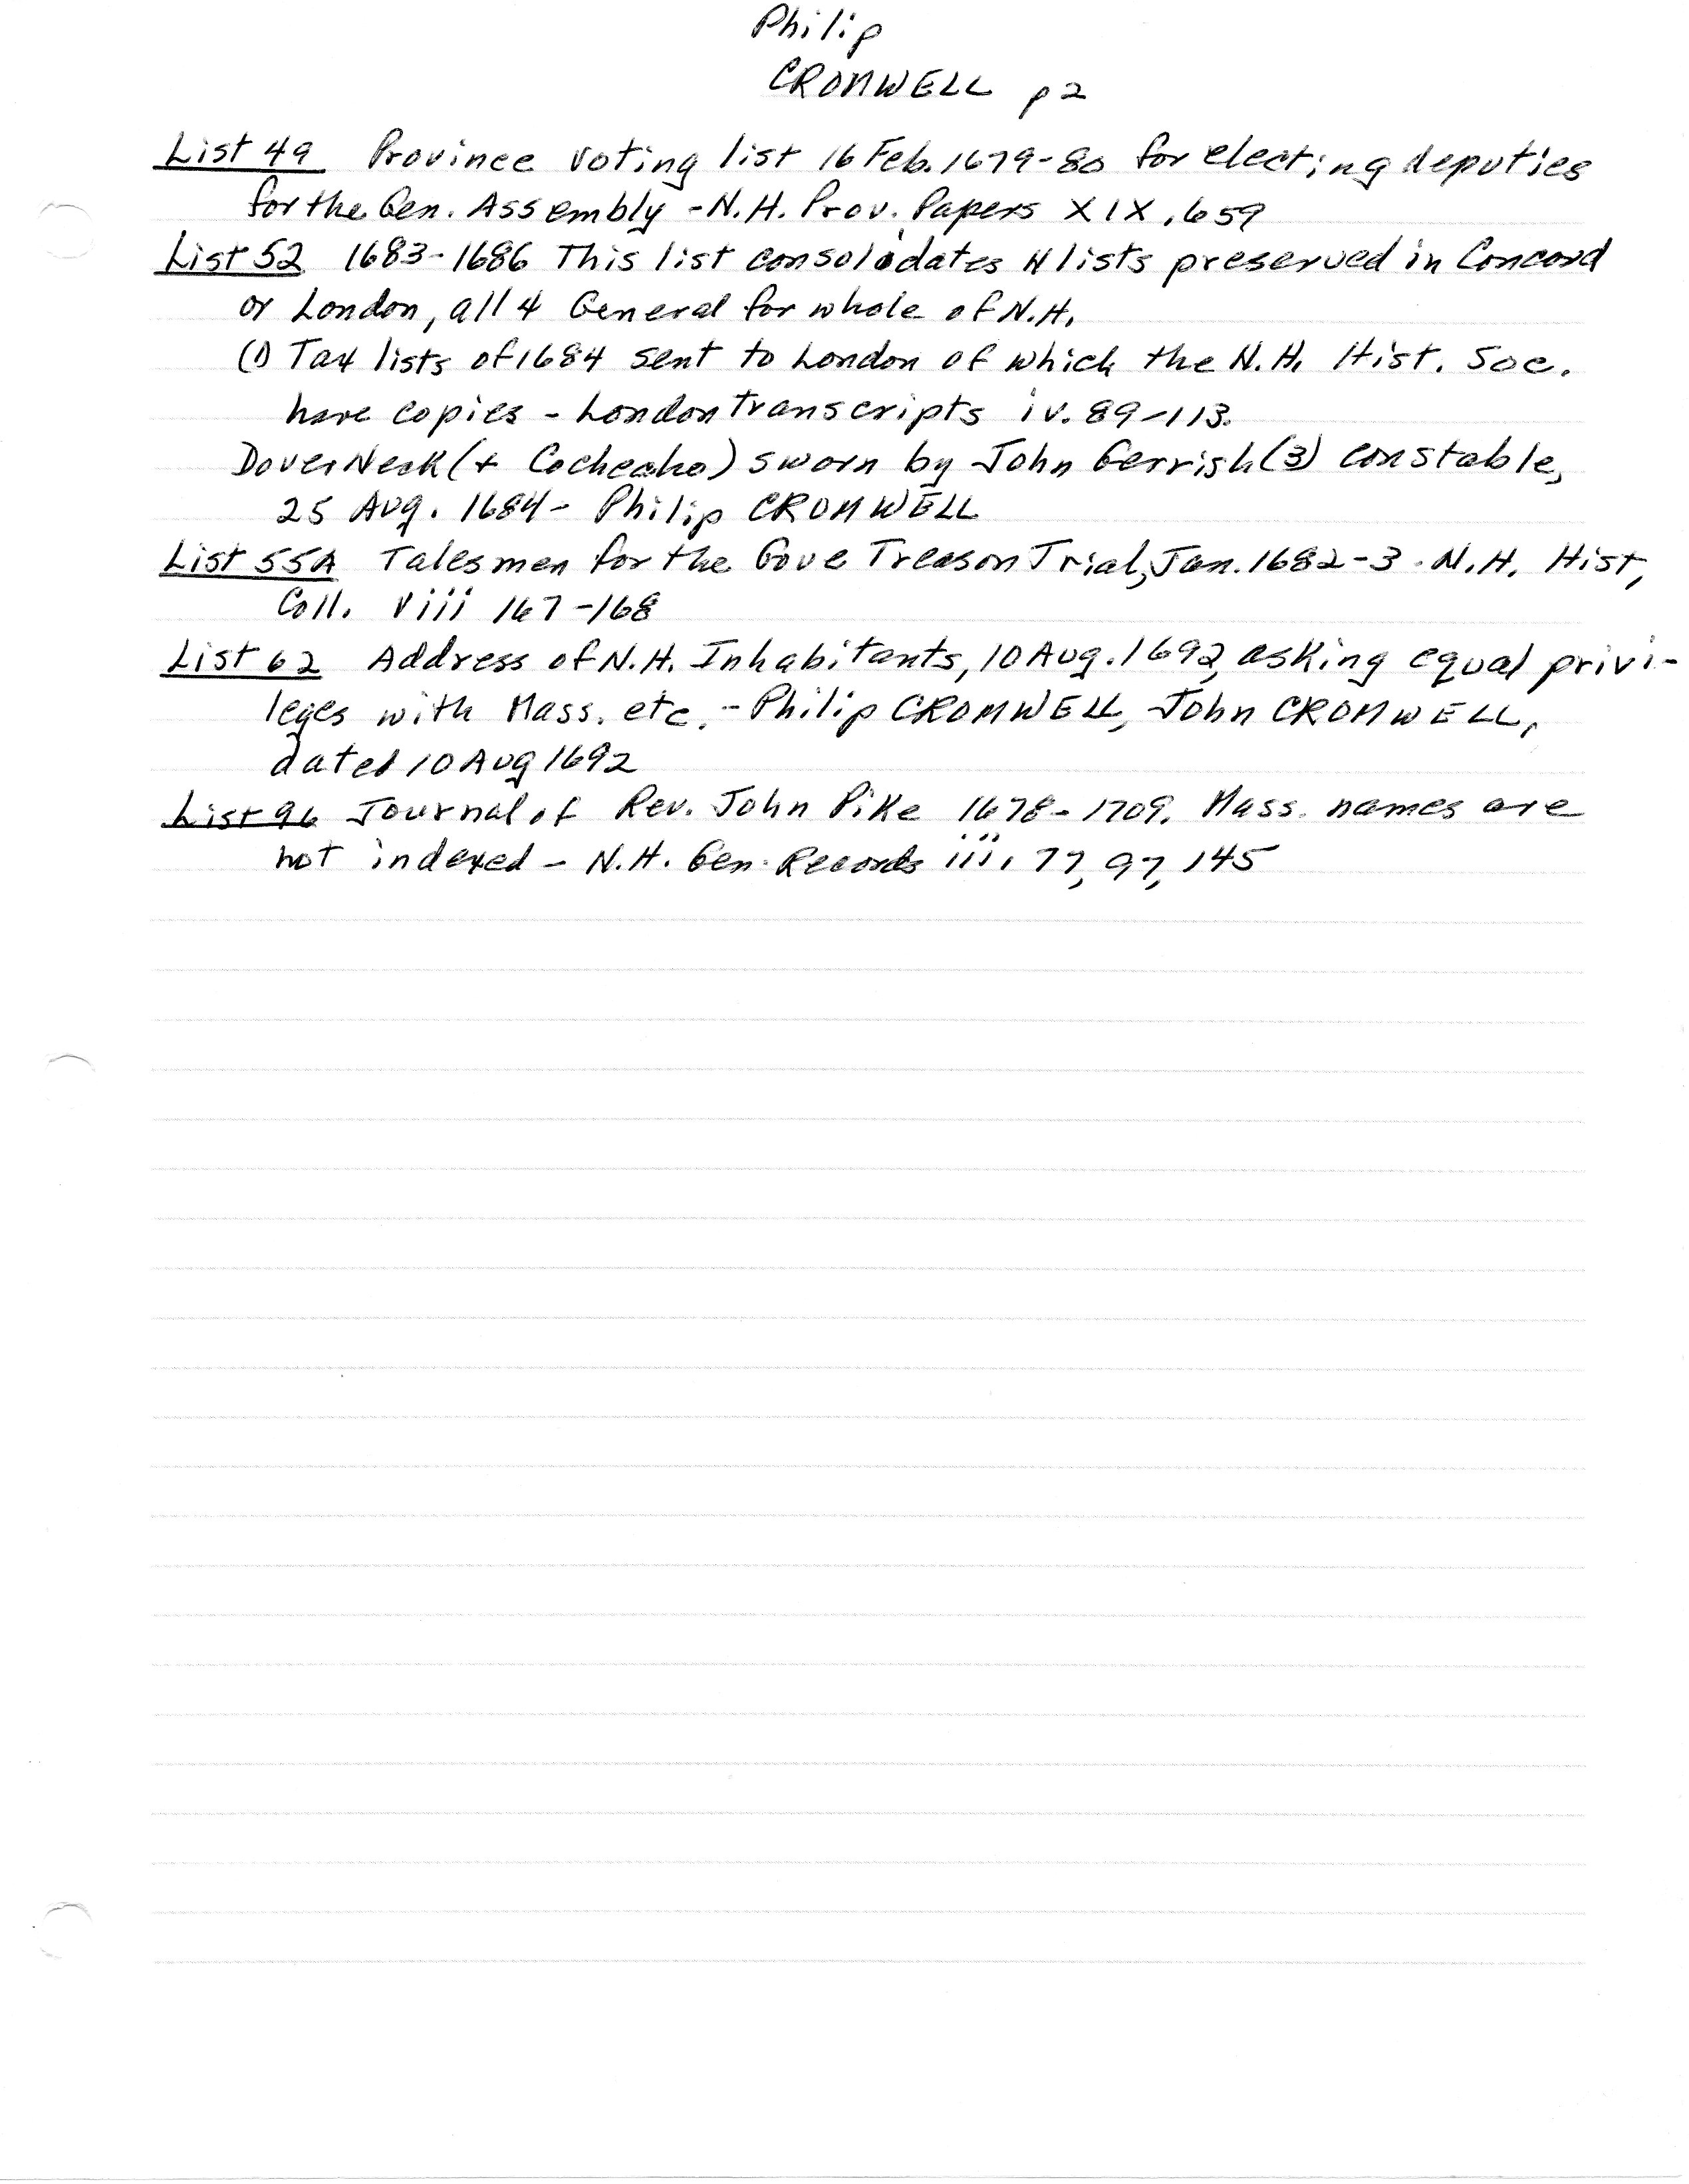 Philip
CROMWELL p 2
List 49 Province voting list 16 Feb. 1679-80 for electing deputies
for the Gen. Assembly - N.H. Prov. Papers XIX, 659
List 52 1683-1686 This list consolidates 4 lists preserved in Concord
or London, all 4 General for whole of N.H.
(1) Tax lists of 1684 sent to London of which the N.H. Hist. Soc.
have copies - London transcripts iv. 89-113.
Dover Neck (+ Cochecho) sworn by John Gerrish (3) constable,
25 Aug. 1684 - Philip CROMWELL
List 55A Talesmen for the Gove Treason Trial, Jan. 1682-3. N.H. Hist,
Coll. viii 167-168
List 62 Address of N.H. Inhabitants, 10 Aug. 1692, asking equal privi-
leges with Mass. etc. - Philip CROMWELL, John CROMWELL,
dated 10 Aug 1692
List 96 Journal of Rev. John Pike 1678-1709. Mass. names are
not indexed - N.H. Gen. Records iii, 77, 97, 145